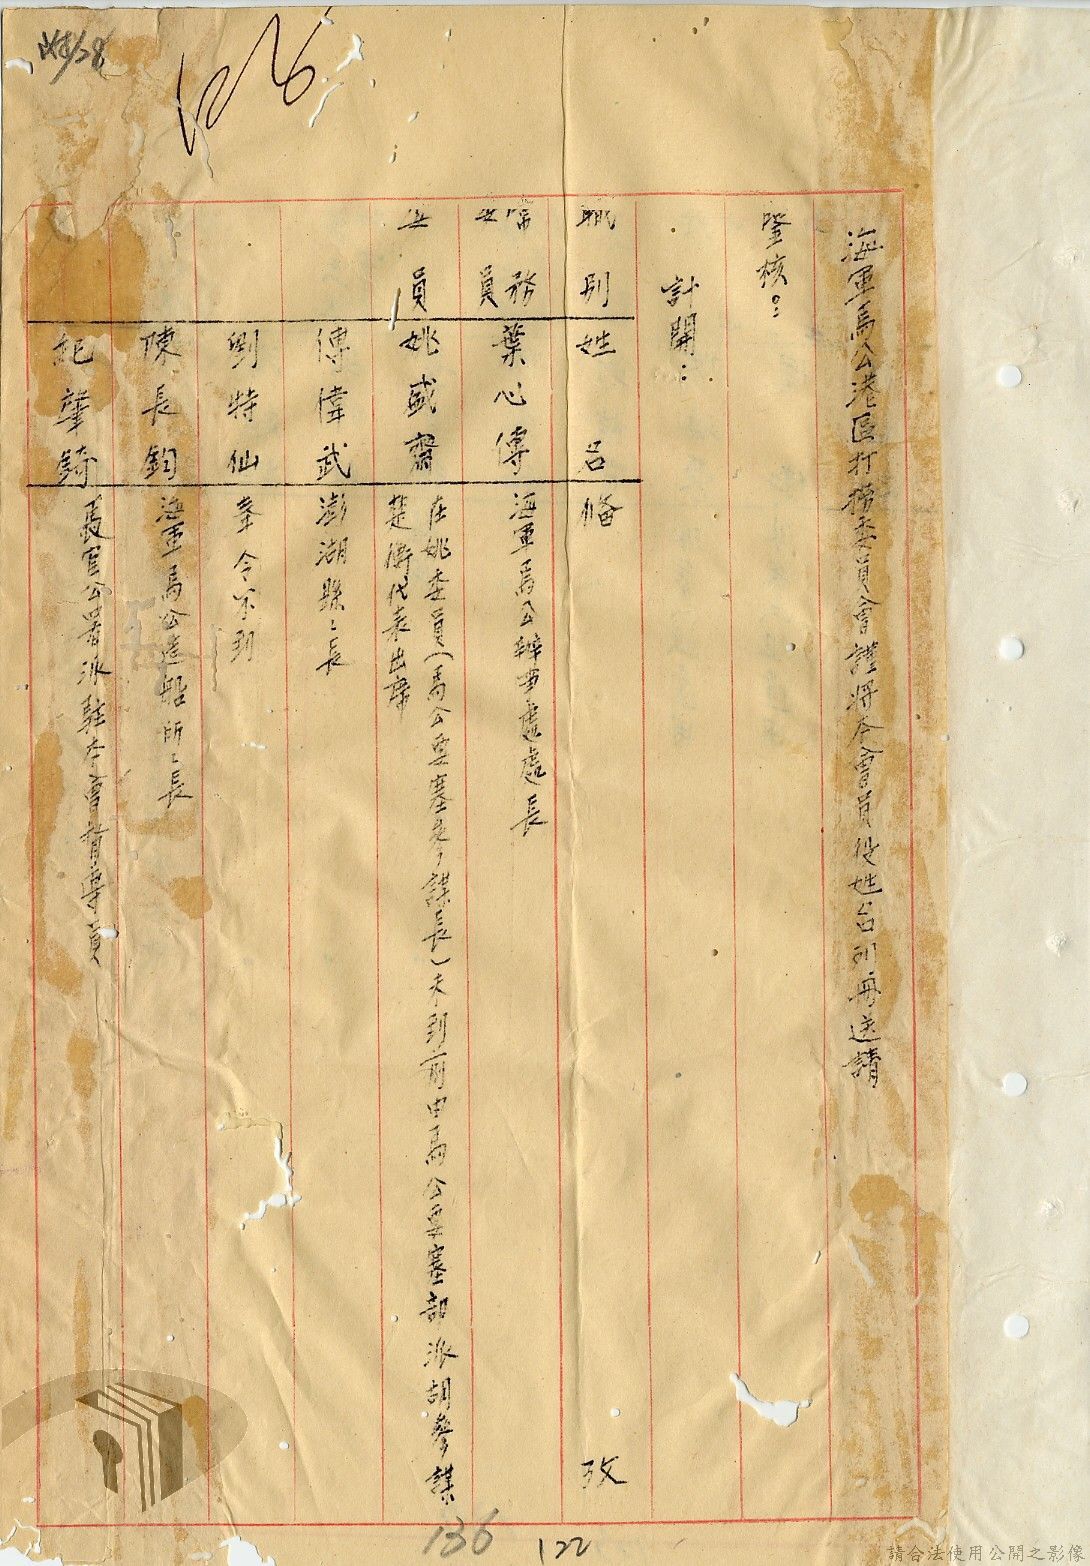 海軍馬公港區打撈委員會謹將本會員役姓名列冊送請
鑒核：
計開：
職別 姓名 備攷
常務委員 葉心傳 海軍馬公辦事處處長
委員 姚盛齋 在姚委員(馬公要塞參謀長)未到前由馬公要塞部派胡參謀
楚衡代表出席
傅偉武 澎湖縣〻長
劉特仙 奉令不到
陳長鈞 海軍馬公造船所〻長
紀肇錡 長官公署派駐本會督導員
136
122
請合法使用公開之影像